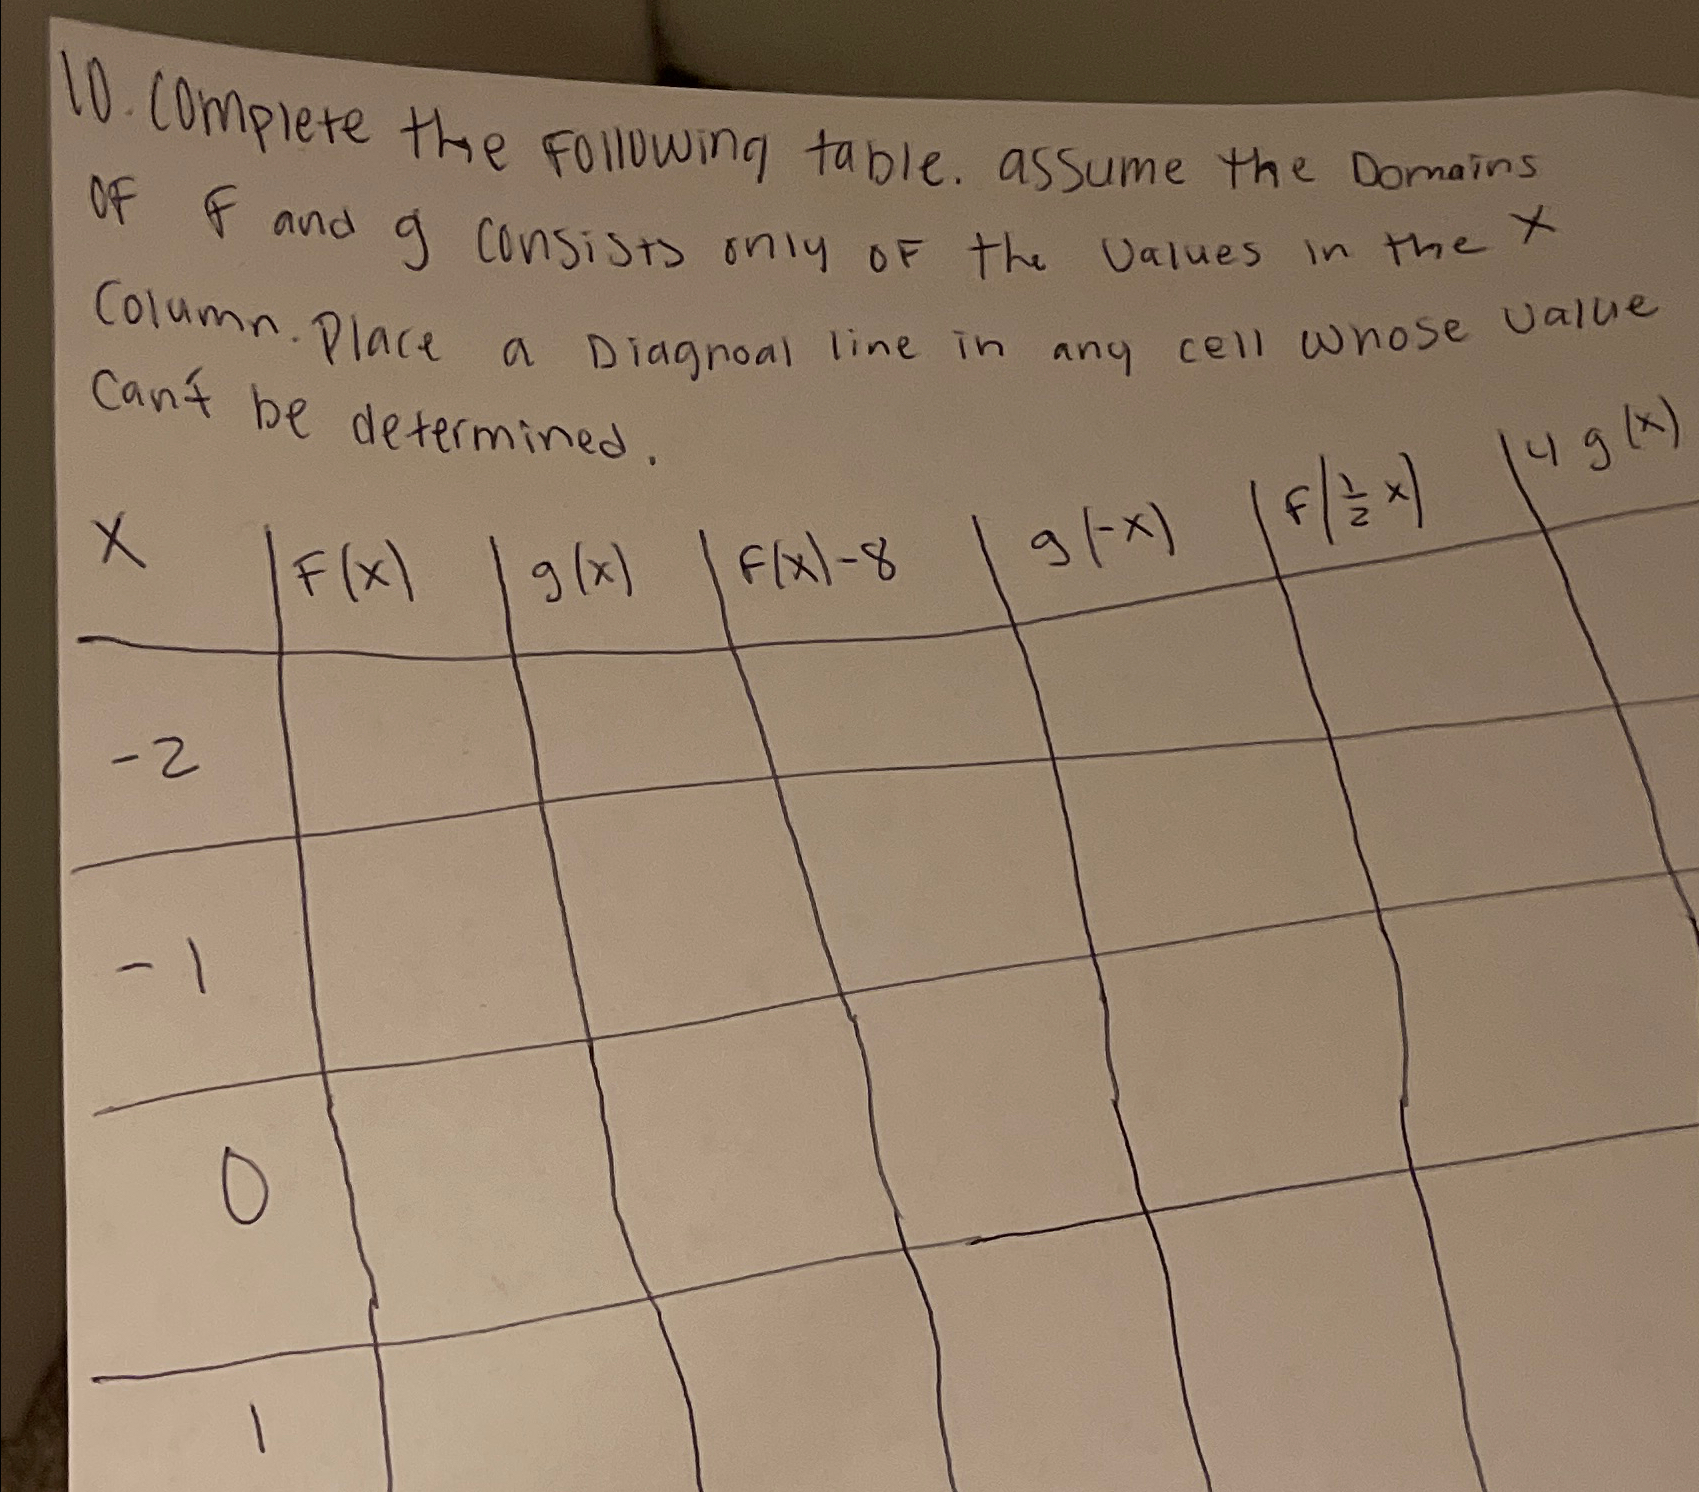 10. Complete the Following table. assume the Domains
OF F and g consists only OF the values in the X
Column. Place a Diagnoal line in any cell whose value
Can't be determined.
X F(x) g(x) F(x)-8 g(-x) F(1/2 x) 4g(x)
-2
-1
0
1